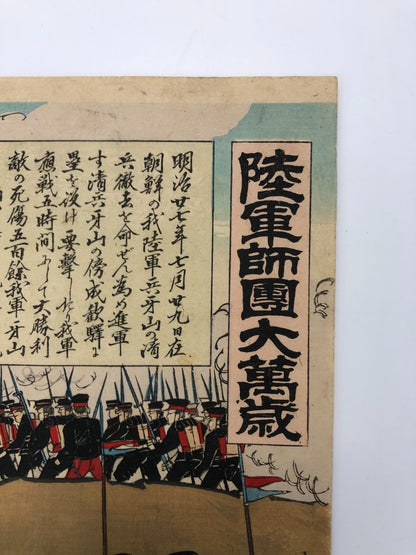 陸軍師團大萬歳
明治廿七年七月廿九日在
朝鮮の我陸軍兵牙山の清
兵徹去を命せん為め進軍
す清兵牙山の傍成歓驛に
塁を設け要撃しけり我軍
應戦五時間にして大勝利
敵の死傷五百餘我軍牙山